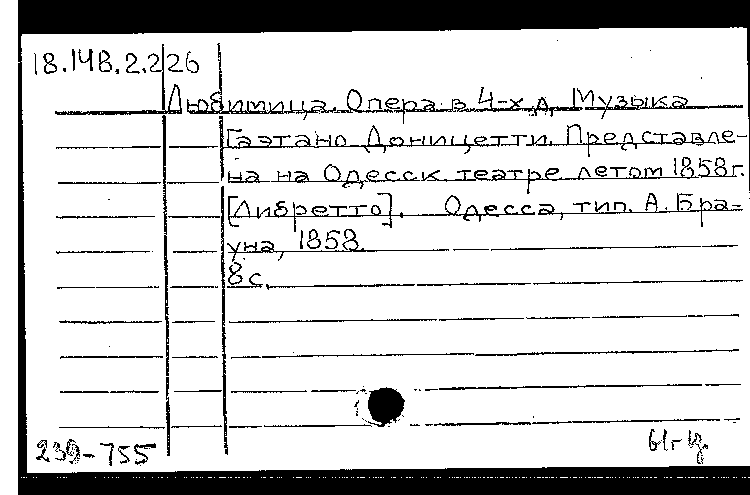 18.14В.2.226
Любимица. Опера в 4-х д. Музыка
Гаэтано Доницетти. Представле-
на на Одесск. театре летом 1858г.
[Либретто]. Одесса, тип. А. Бра-
уна, 1858.
8 с.
239-755